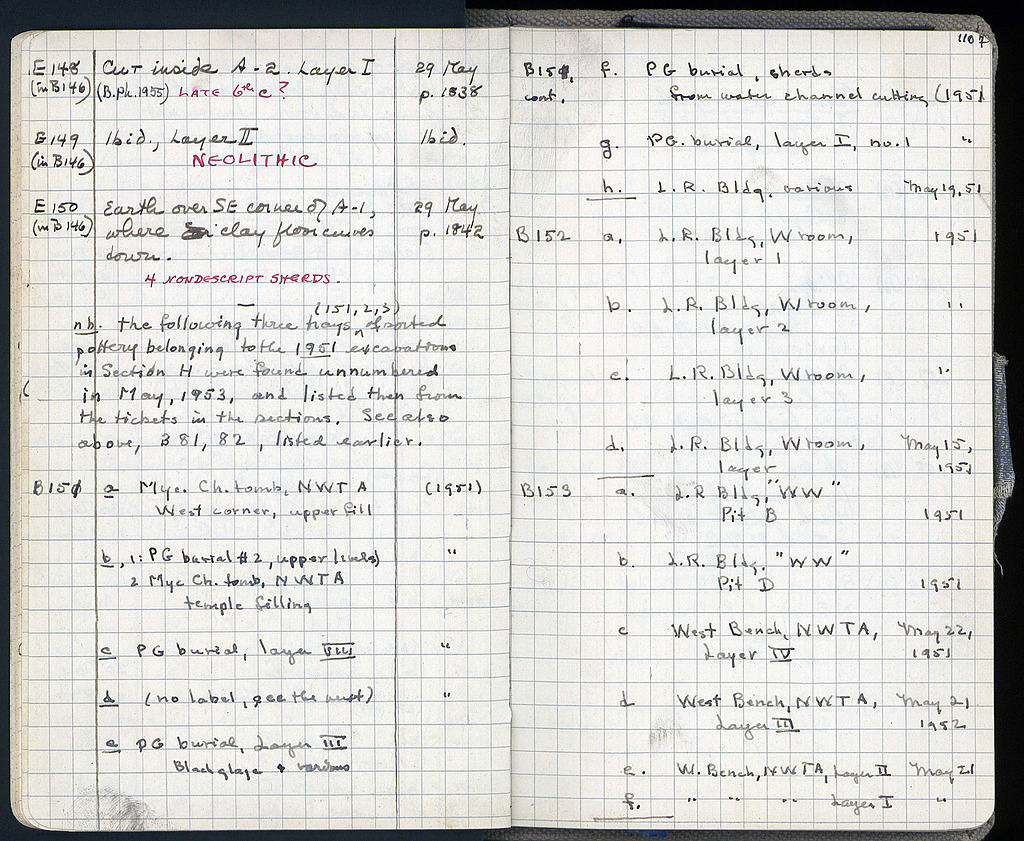 E 148 Cut inside A-2 Layer I 29 May
(in B146) (B.Ph. 1955) LATE 6th c? p. 1838
E 149 Ibid., Layer II Ibid.
(in B146) NEOLITHIC
E 150 Earth over SE corner of A-1, 29 May
(in B146) where clay floor curves p. 1842
down.
4 NONDESCRIPT SHERDS.
(151,2,3)
nb. the following three trays of sorted
pottery belonging to the 1951 excavations
in Section H were found unnumbered
in May, 1953, and listed then from
the tickets in the sections. See also
above, B 81, 82, listed earlier.
B 151 a Myc. Ch. tomb, NWTA (1951)
West corner, upper fill
b, 1: PG burial #2, upper levels) "
2 Myc Ch. tomb, NWTA
temple filling
c PG burial, layer VIII "
d (no label, see the next) "
e PG burial, Layer III
Black glaze & various
1107
B151, f. PG burial, sherds
cont. from water channel cutting (1951
g. PG. burial, layer I, no. 1 "
h. L.R. Bldg, various May 19, 51
B 152 a. L.R. Bldg, W room, 1951
layer 1
b. L.R. Bldg, W room, "
layer 2
c. L.R. Bldg, W room, "
layer 3
d. L.R. Bldg, W room, May 15,
layer 1951
B153 a. L.R Bldg, "WW"
Pit B 1951
b. L.R. Bldg. "WW"
Pit D 1951
c West Bench, NWTA, May 22,
Layer IV 1951
d West Bench, NWTA, May 21
Layer III 1952
e. W. Bench, NWTA, Layer II May 21
f. " " " Layer I "